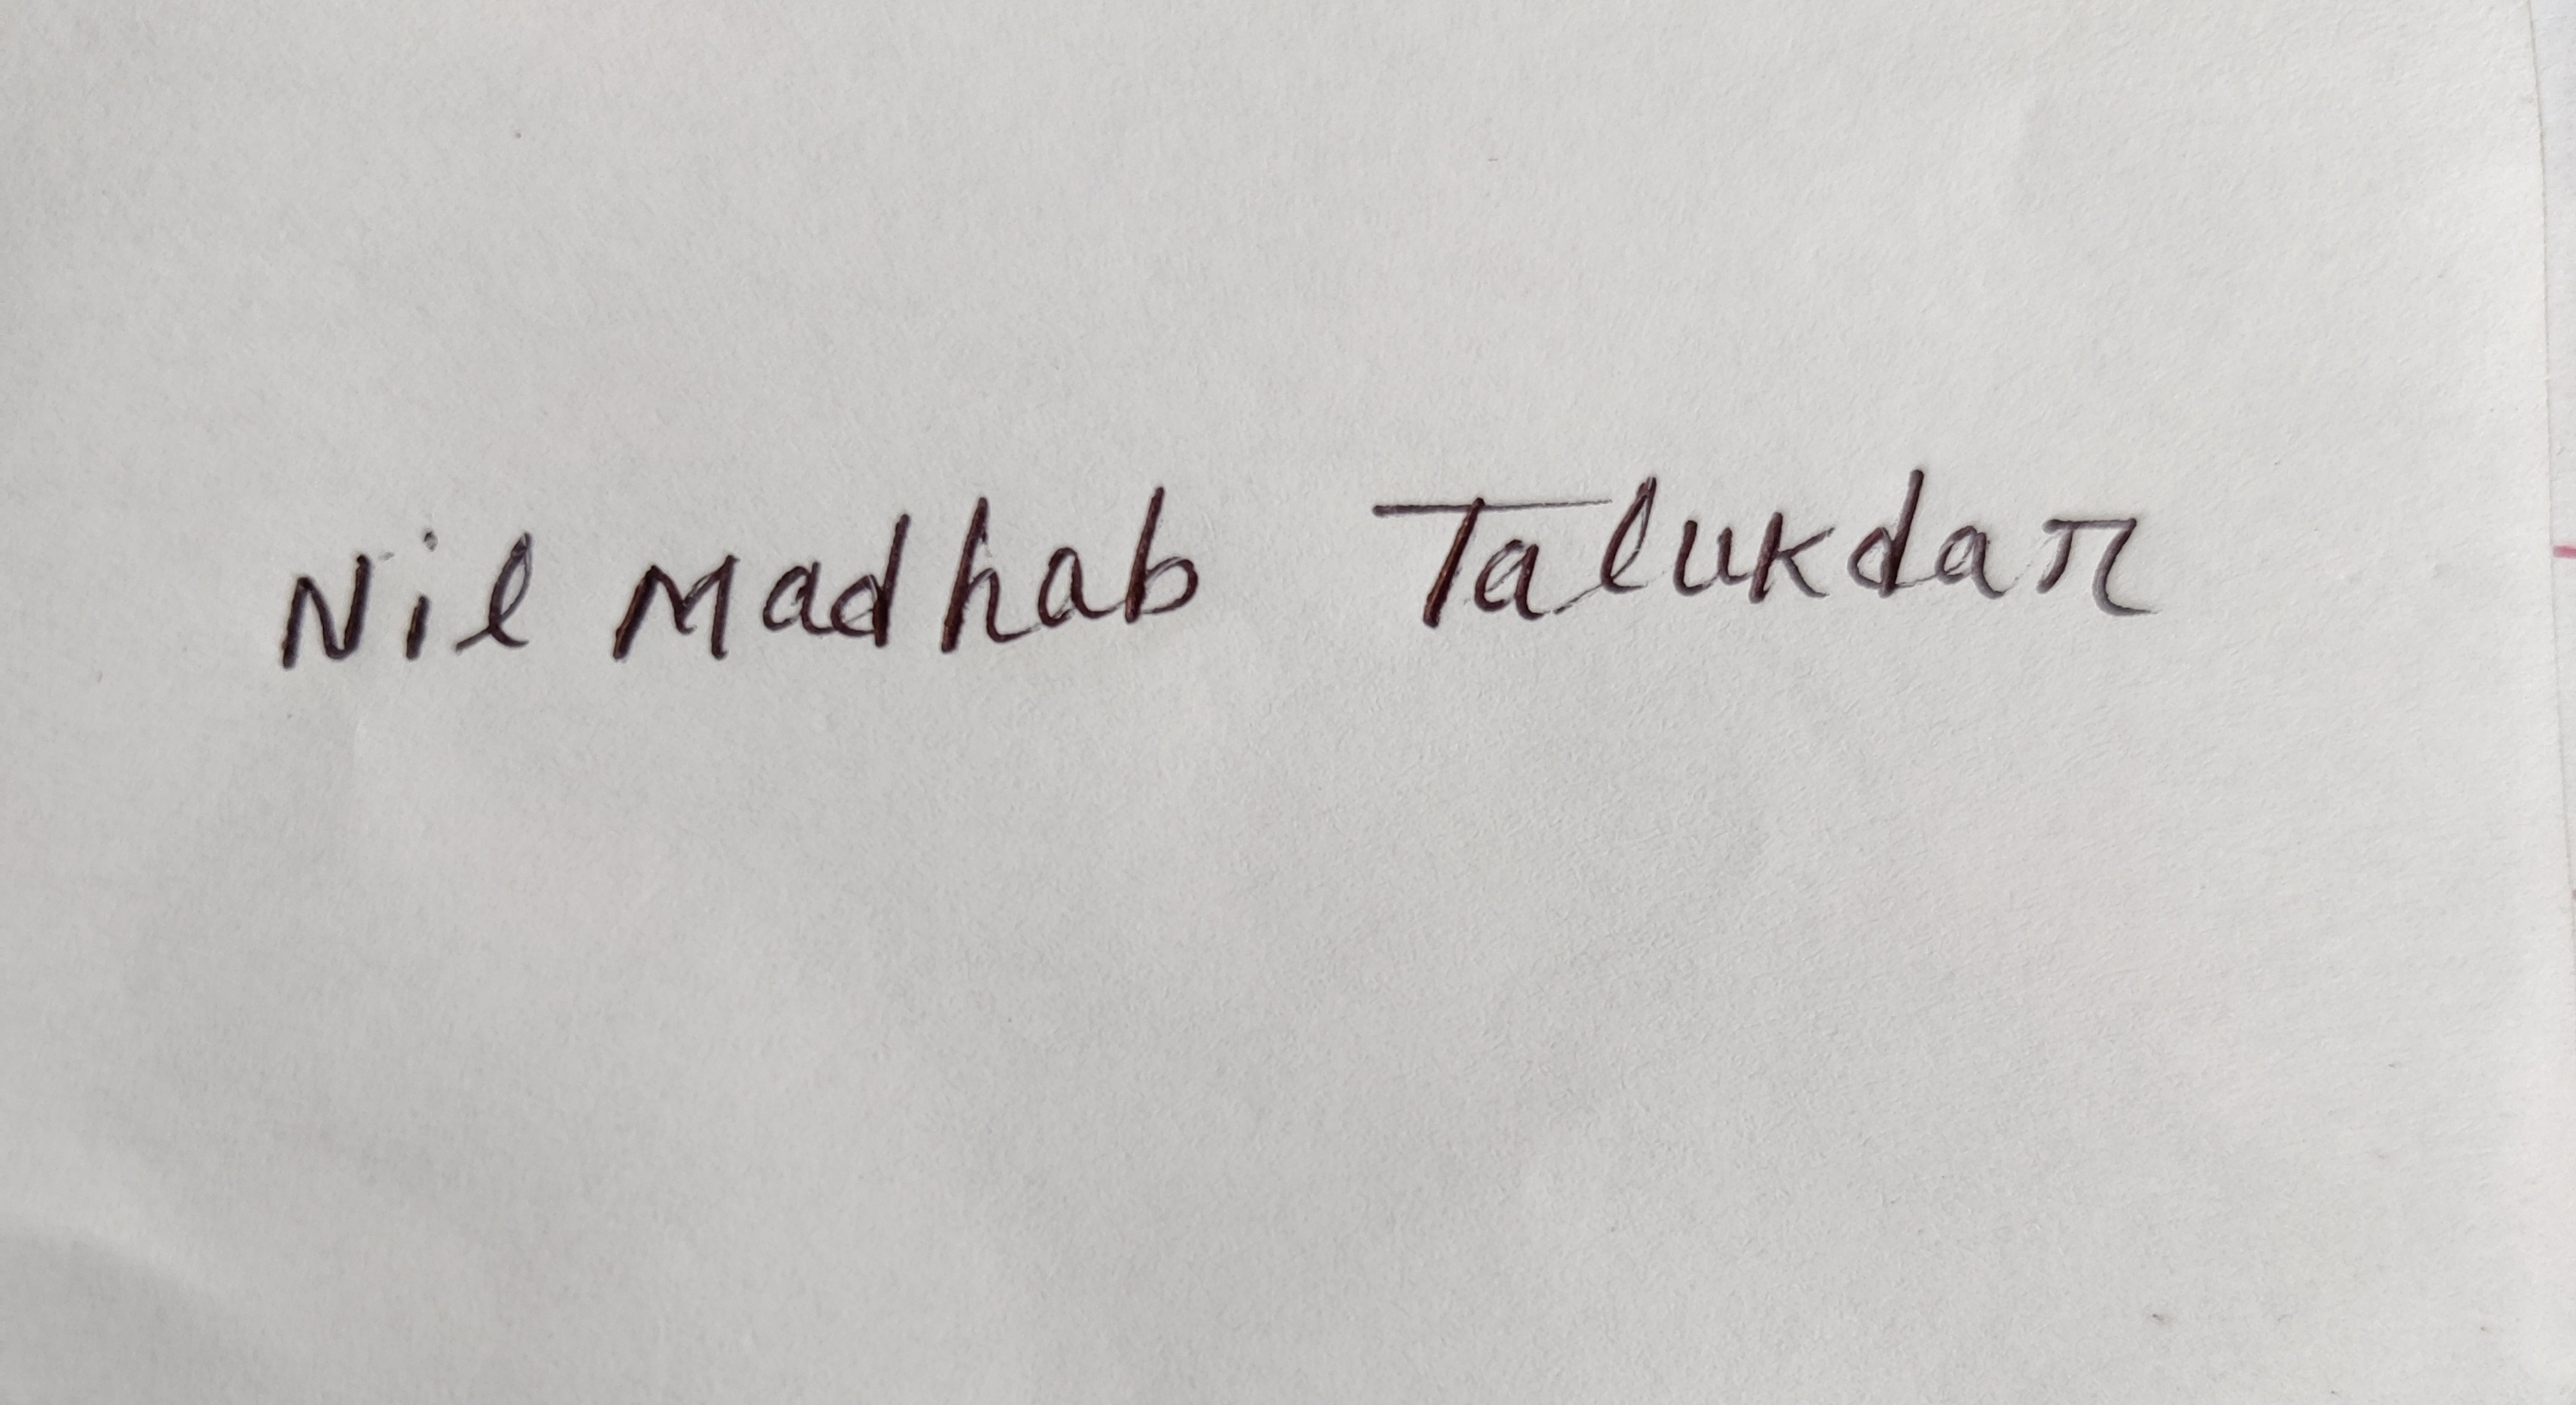 Nil Madhab Talukdar